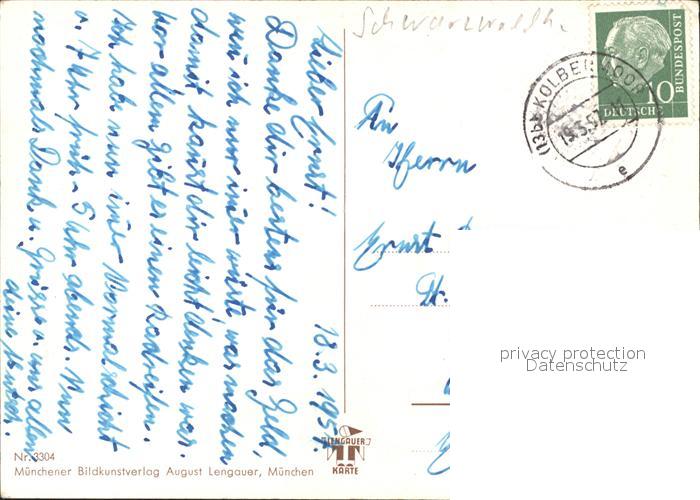 Schwarzwaldh.
DEUTSCHE
BUNDESPOST
10
(13b) KOLBERMOOR
19.3.57
e
An
Herrn
Ernst
St.
18.3.1957.
Lieber Ernst!
Danke dir bestens für das Geld,
wen ich nur imer wüste was machen
damit kanst dir leicht denken was.
vor allem gibt es einen Radreifen.
Ich habe nun imer Normalschicht
v. 7 Uhr früh - 5 Uhr abends. Nun
nochmals Dank u. Grüsse v. uns allen
dein
Nr. 3304
Münchener Bildkunstverlag August Lengauer, München
LENGAUER
KARTE
privacy protection
Datenschutz